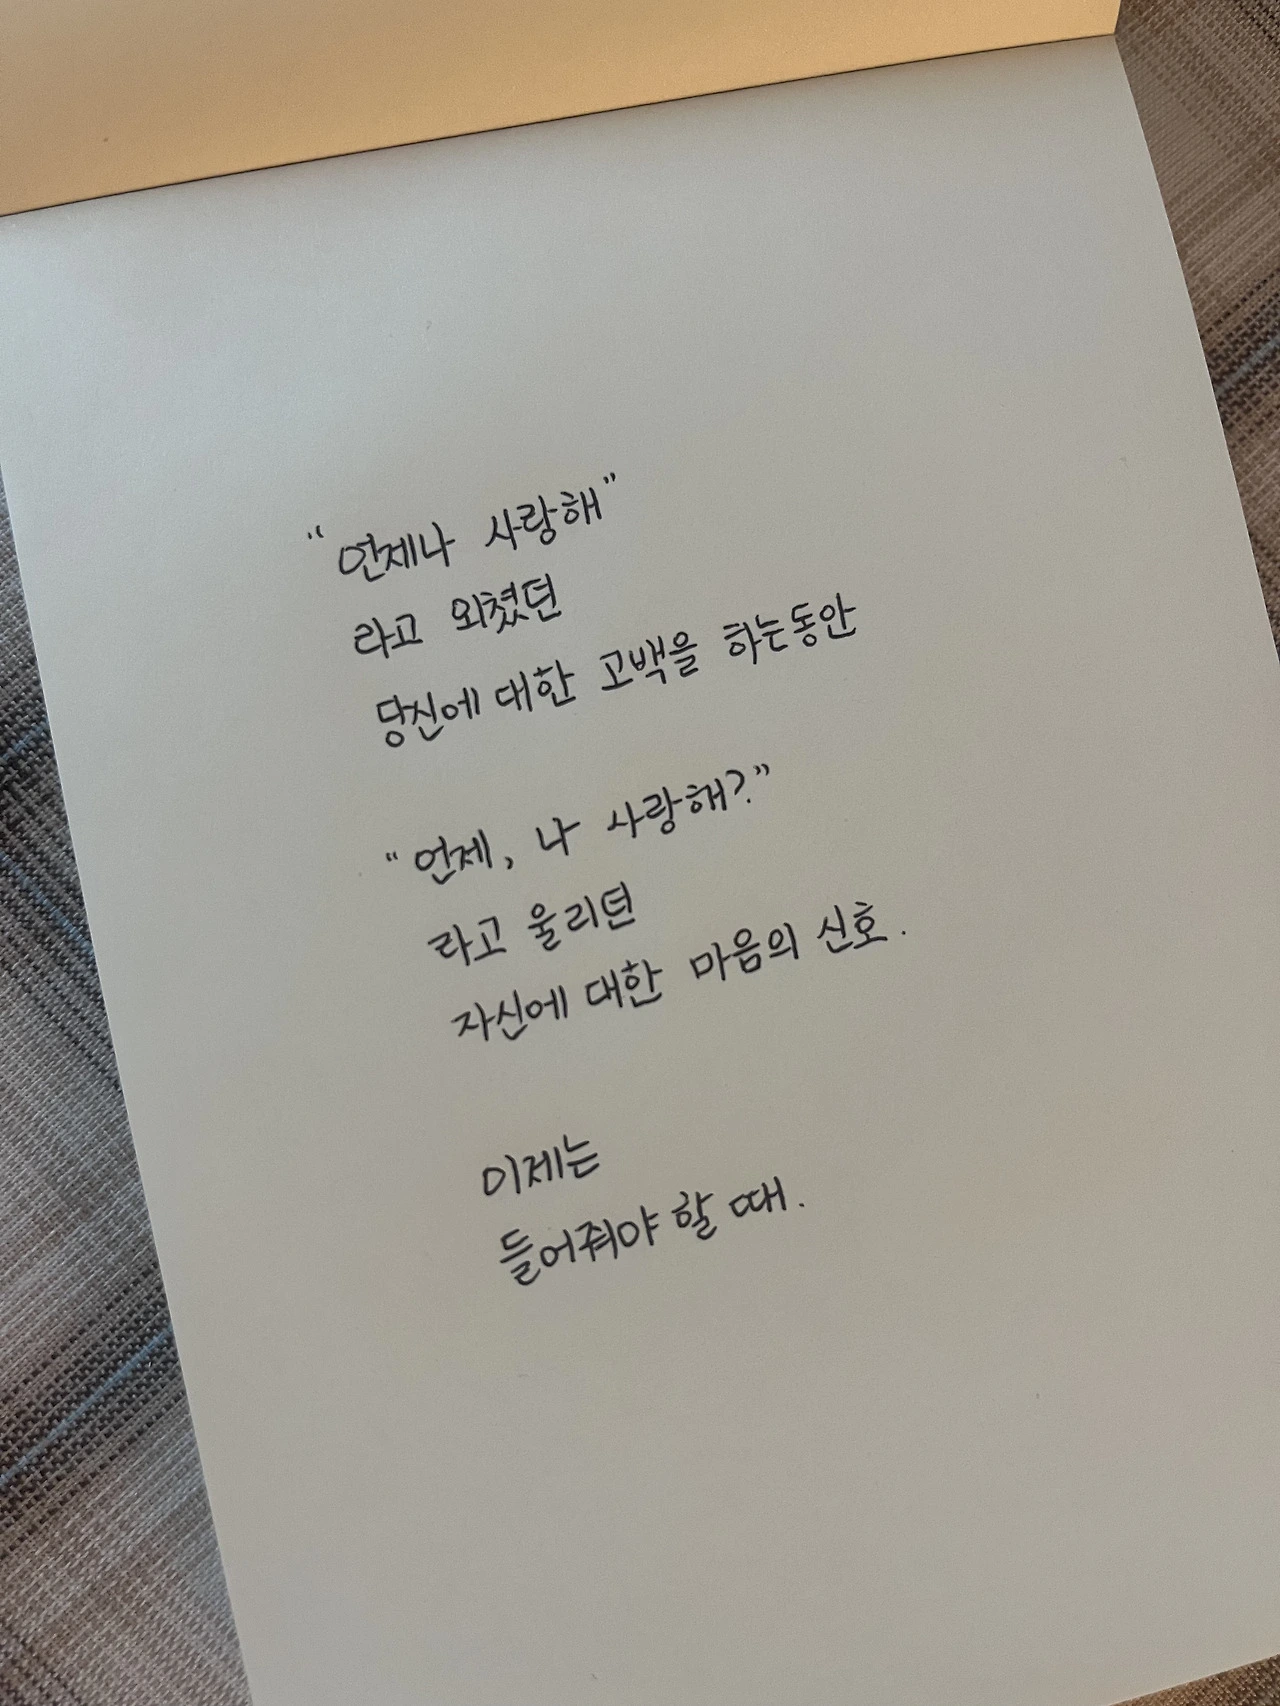 “언제나 사랑해”
라고 외쳤던
당신에 대한 고백을 하는동안
“언제, 나 사랑해?”
라고 울리던
자신에 대한 마음의 신호.
이제는
들어줘야 할 때.